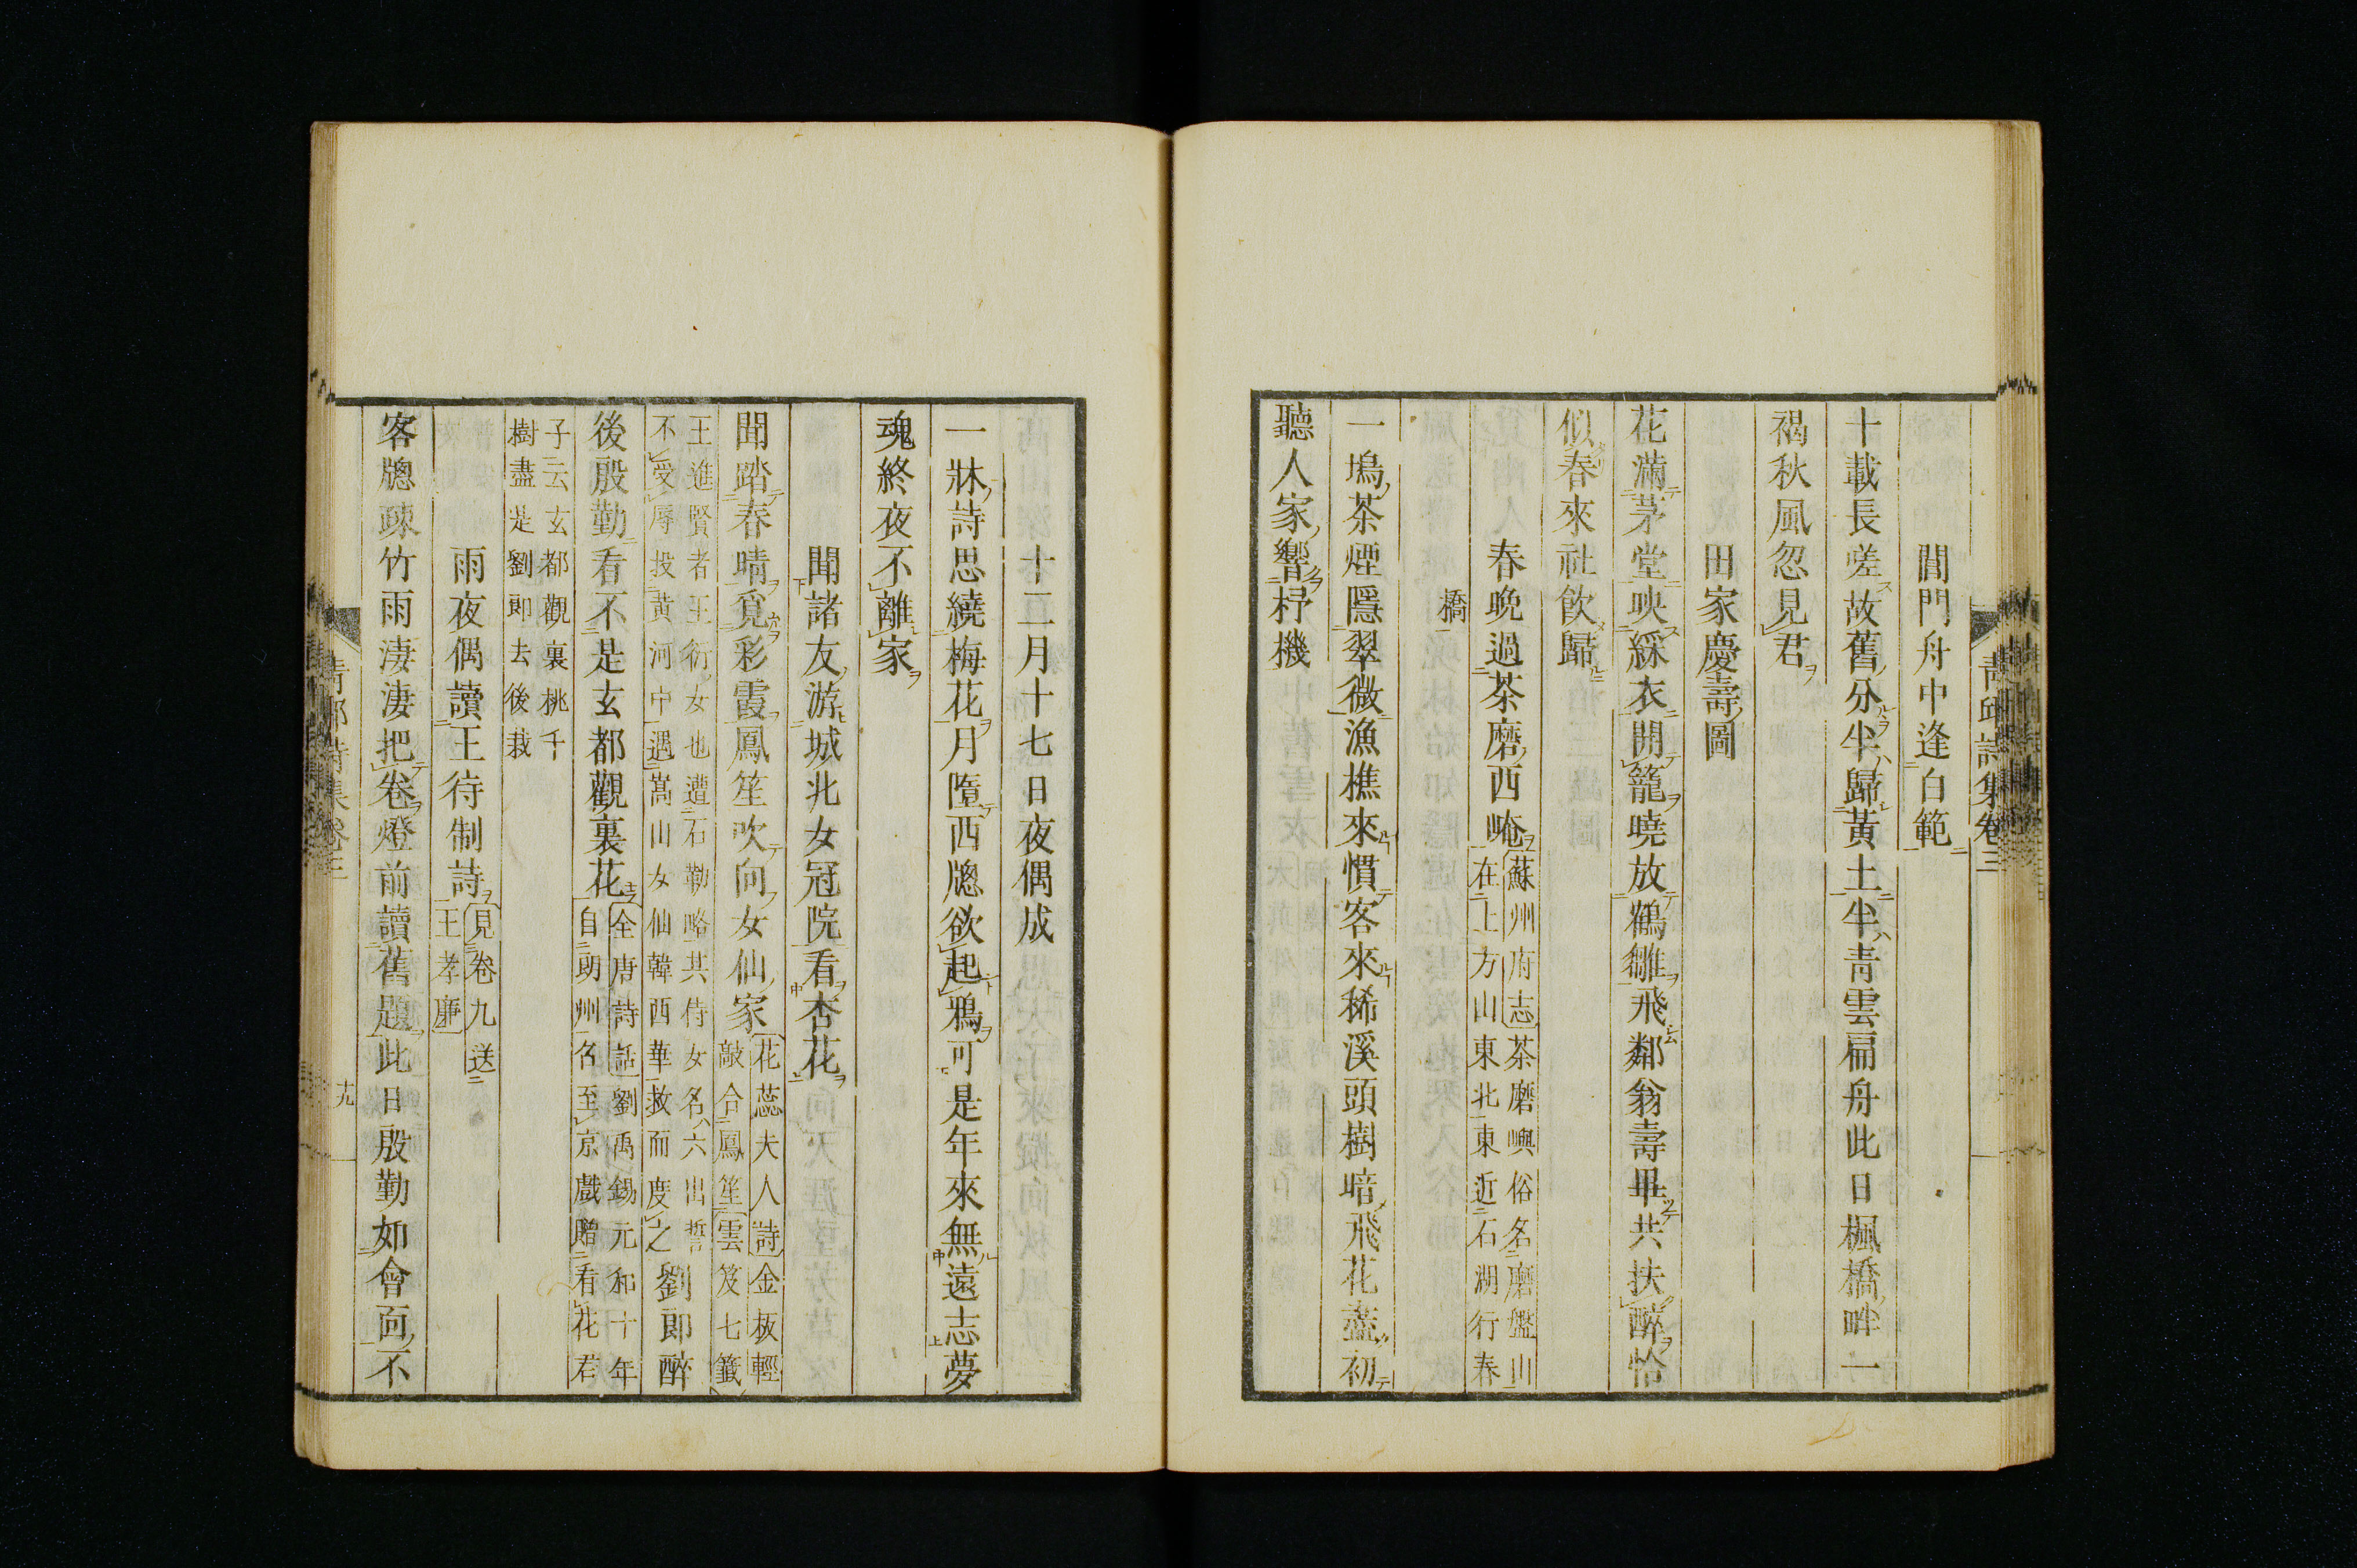 閶門舟中逢白範
十載長嗟故舊分半歸黃土半青雲扁舟此日楓橋畔一
褐秋風忽見君
田家慶壽圖
花滿茅堂映綵衣開籠曉放鶴雛飛鄰翁壽畢共扶醉恰
似春來社飲歸
春晚過茶磨西崦
蘇州府志茶磨嶼俗名磨盤山
在上方山東北東近石湖行春
橋
一塢茶煙隱翠微漁樵來慣客來稀溪頭樹暗飛花盡初
聽人家響杼機
十二月十七日夜偶成
一牀詩思繞梅花月墮西牕欲起鴉可是年來無遠志夢
魂終夜不離家
聞諸友游城北女冠院看杏花
聞踏春晴覓彩霞鳳笙吹向女仙家
花蕊夫人詩金板輕
敲合鳳笙雲笈七籤
王進賢者王衍女也遭石勒略其侍女名六出誓
不受辱投黃河中遇嵩山女仙韓西華救而度之
劉郎醉
後殷勤看不是玄都觀裏花
全唐詩話劉禹錫元和十年
自朗州召至京戲贈看花君
子云玄都觀裏桃千
樹盡是劉郎去後栽
雨夜偶讀王待制詩
見卷九送
王孝廉
客牕疎竹雨淒淒把卷燈前讀舊題此日殷勤如會面不
青邱詩集卷三
十九